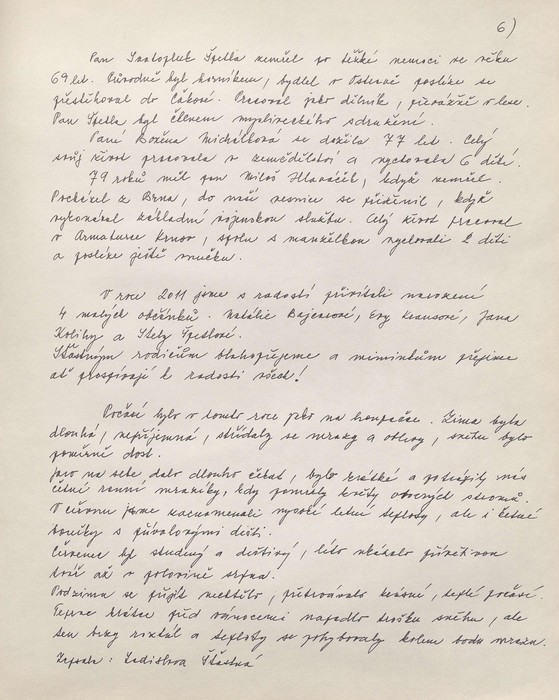 6)
Pan Svatopluk Špetla zemřel po těžké nemoci ve věku
69 let. Původně byl horníkem, bydlel v Ostravě později se
přestěhoval do Čákové. Pracoval jako dělník, převážně v lese.
Pan Špetla byl členem mysliveckého sdružení.
Paní Božena Michálková se dožila 77 let. Celý
svůj život pracovala v zemědělství a vychovala 6 dětí.
79 roků měl pan Miloš Hlaváček, když zemřel.
Pocházel z Brna, do naší vesnice se přiženil, když
vykonával základní vojenskou službu. Celý život pracoval
v Armaturce Krnov, spolu s manželkou vychovali 2 děti
a později ještě vnučku.
V roce 2011 jsme s radostí přivítali narození
4 malých občánků. Natálie Bajerové, Evy Krausové, Jana
Kolihy a Stely Špetlové.
Šťastným rodičům blahopřejeme a miminkům přejeme
ať prospívají k radosti všech!
Počasí bylo v tomto roce jako na houpačce. Zima byla
dlouhá, nepříjemná, střídaly se mrazy a oblevy, sněhu bylo
poměrně dost.
Jaro na sebe dalo dlouho čekat, bylo krátké a potrápily nás
četné ranní mrazíky, kdy pomrzly květy ovocných stromů.
V červnu jsme zaznamenali vysoké letní teploty, ale i četné
bouřky s přívalovými dešti.
Červenec byl studený a deštivý, léto ukázalo přívětivou
tvář až v polovině srpna.
Podzimu se přijít nechtělo, přetrvávalo krásné, teplé počasí.
Teprve krátce před vánocemi napadlo trošku sněhu, ale
ten brzy roztál a teploty se pohybovaly kolem bodu mrazu.
Zapsala: Ladislava Šťastná